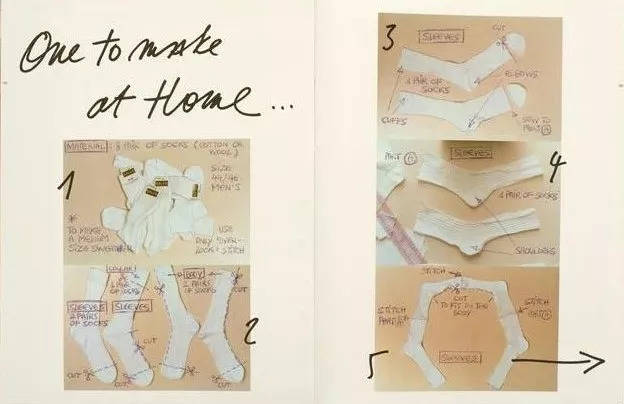 One to make
at Home...
1
MATERIAL: 8 PAIR OF SOCKS (COTTON OR
WOOL)
SIZE
44/46
MEN'S
*
TO MAKE
A MEDIUM
SIZE SWEATER
USE
ONLY OVER-
LOCK STITCH
2
1 PAIR
OF SOCKS
BODY
2 PAIRS
OF SOCKS
CUT
SLEEVES
2 PAIRS
OF SOCKS
SLEEVES
CUT
CUT
CUT
3
SLEEVES
CUT
1 PAIR OF
SOCKS
ELBOWS
CUFFS
SEW TO
PART A
4
PART A
SLEEVES
1 PAIR OF SOCKS
SHOULDERS
5
STITCH
CUT
TO FIT IN THE
BODY
STITCH
PART
STITCH